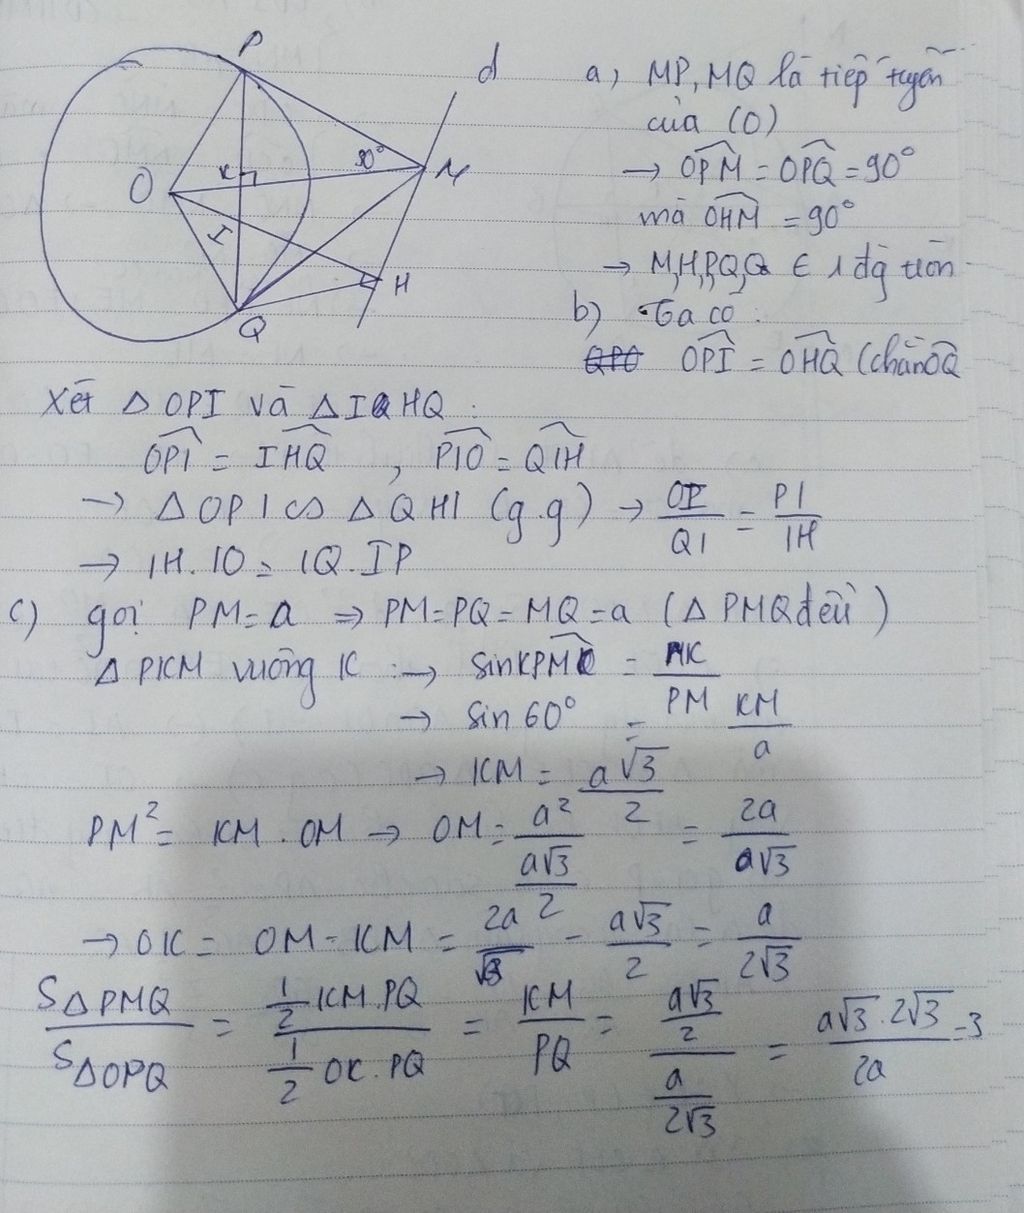 P
d
O
K
30°
M
I
H
Q
a) MP, MQ là tiếp tuyến
của (O)
→ OPM = OPQ = 90°
mà OHM = 90°
→ M,H,P,Q,O ∈ 1 đg tròn
b) Ta có :
QPO OPI = OHQ (chắn OQ
Xét Δ OPI và Δ IHQ :
OPI = IHQ , PIO = QIH
→ Δ OPI ∽ Δ QHI (g.g) → OI/QI = PI/IH
→ IH. IO = IQ. IP
c) gọi PM = a ⇒ PM = PQ = MQ = a (Δ PMQ đều)
Δ PKM vuông K : → sin KPM = MK/PM
→ sin 60° = KM/a
→ KM = a√3/2
PM² = KM . OM → OM = a²/(a√3/2) = 2a/a√3
→ OK = OM - KM = 2a/√3 - a√3/2 = a/2√3
SΔPMQ/SΔOPQ = (1/2 KM.PQ)/(1/2 OK.PQ) = KM/PQ = (a√3/2)/(a/2√3) = a√3.2√3/2a = 3